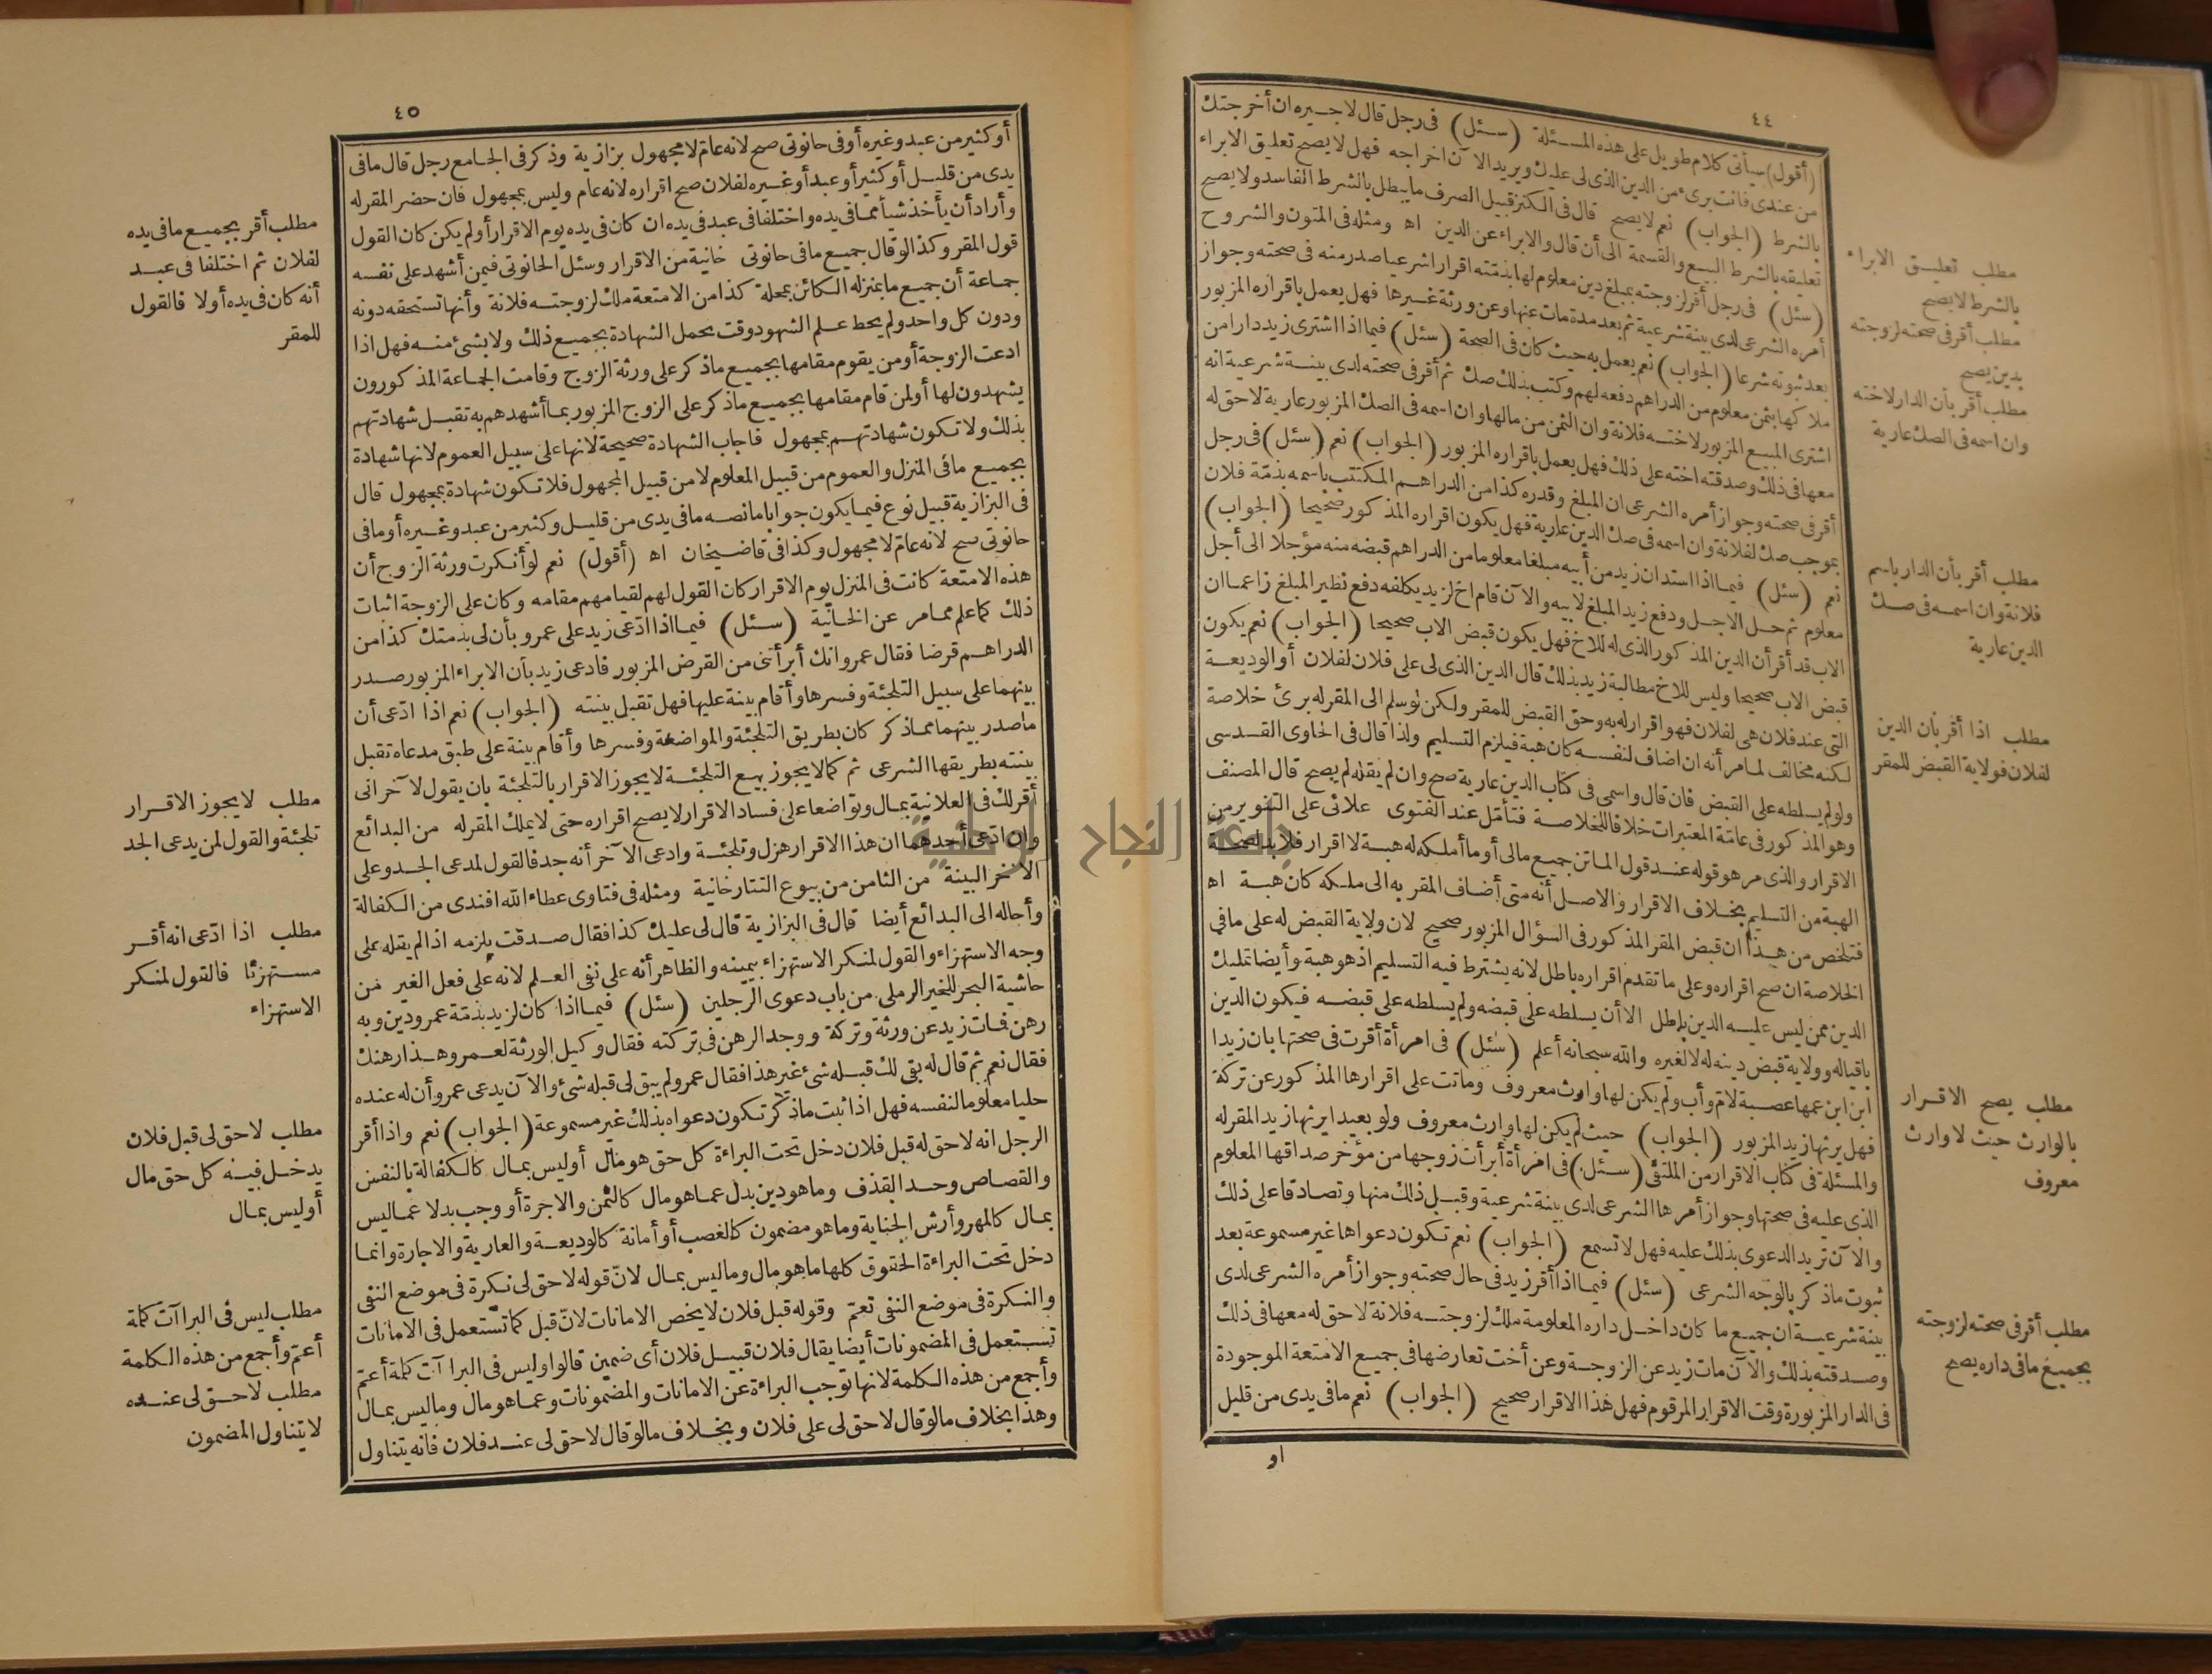 ٤٤
(أقول) سيأتى كلام طويل على هذه المسئلة (سئل) فى رجل قال لاجيره ان أخرجتك
من عندى فانت برىء من الدين الذى لى عليك ويريد الآن اخراجه فهل لا يصح تعليق الابراء
بالشرط (الجواب) نعم لا يصح قال فى الكنز قبيل الصرف ما يبطل بالشرط الفاسد ولا يصح
تعليقه بالشرط البيع والقسمة الى أن قال والابراء عن الدين اه ومثله فى المتون والشروح
(سئل) فى رجل أقر لزوجته بمبلغ دين معلوم لها بذمته اقرارا شرعيا صدر منه فى صحته وجواز
أمره الشرعى لدى بينة شرعية ثم بعد مدة مات عنها وعن ورثة غيرها فهل يعمل باقراره المزبور
بعد ثبوته شرعا (الجواب) نعم يعمل به حيث كان فى الصحة (سئل) فيما اذا اشترى زيد دارا من
ملاكها بثمن معلوم من الدراهم دفعه لهم وكتب بذلك صك ثم أقر فى صحته لدى بينة شرعية انه
اشترى المبيع المزبور لاخته فلانة وان الثمن من مالها وان اسمه فى الصك المزبور عارية لا حق له
معها فى ذلك وصدقته اخته على ذلك فهل يعمل باقراره المزبور (الجواب) نعم (سئل) فى رجل
أقر فى صحته وجواز أمره الشرعى ان المبلغ وقدره كذا من الدراهم المكتتب باسمه بذمّة فلان
بموجب صك لفلانة وان اسمه فى صك الدين عارية فهل يكون اقراره المذكور صحيحا (الجواب)
نعم (سئل) فيما اذا استدان زيد من أبيه مبلغا معلوما من الدراهم قبضه منه مؤجلا الى أجل
معلوم ثم حل الاجل ودفع زيد المبلغ لابيه والآن قام اخ لزيد يكلفه دفع نظير المبلغ زاعما ان
الاب قد أقر أن الدين المذكور الذى له للاخ فهل يكون قبض الاب صحيحا (الجواب) نعم يكون
قبض الاب صحيحا وليس للاخ مطالبة زيد بذلك قال الدين الذى لى على فلان لفلان أو الوديعة
التى عند فلان هى لفلان فهو اقرار له به وحق القبض للمقر ولكن لو سلم الى المقر له برئ خلاصة
لكنه مخالف لما مر أنه ان اضاف لنفسه كان هبة فيلزم التسليم ولذا قال فى الحاوى القدسى
ولو لم يسلطه على القبض فان قال واسمى فى كتاب الدين عارية صح وان لم يقله لم يصح قال المصنف
وهو المذكور فى عامّة المعتبرات خلافا للخلاصة فتأمّل عند الفتوى علائى على التنوير من
الاقرار والذى مر هو قوله عند قول الماتن جميع مالى أو ما أملكه له هبة لا اقرار فلا بد لصحة
الهبة من التسليم بخلاف الاقرار والاصل أنه متى أضاف المقر به الى ملكه كان هبة اه
فتلخص من هذا ان قبض المقر المذكور فى السؤال المزبور صحيح لان ولاية القبض له على ما فى
الخلاصة ان صح اقراره وعلى ما تقدم اقراره باطل لانه يشترط فيه التسليم اذ هو هبة وأيضا تمليك
الدين ممن ليس عليه الدين باطل الا أن يسلطه على قبضه ولم يسلطه على قبضه فيكون الدين
باقيا له وولاية قبض دينه له لا لغيره والله سبحانه أعلم (سئل) فى امرأة أقرت فى صحتها بان زيدا
ابن ابن عمها عصبة لام وأب ولم يكن لها وارث معروف وماتت على اقرارها المذكور عن تركة
فهل يرثها زيد المزبور (الجواب) حيث لم يكن لها وارث معروف ولو بعيدا يرثها زيد المقر له
والمسئلة فى كتاب الاقرار من الملتقى (سئل) فى امرأة أبرأت زوجها من مؤخر صداقها المعلوم
الذى عليه فى صحتها وجواز أمرها الشرعى لدى بينة شرعية وقبل ذلك منها وتصادقا على ذلك
والآن تريد الدعوى بذلك عليه فهل لا تسمع (الجواب) نعم تكون دعواها غير مسموعة بعد
ثبوت ما ذكر بالوجه الشرعى (سئل) فيما اذا أقر زيد فى حال صحته وجواز أمره الشرعى لدى
بينة شرعية ان جميع ما كان داخل داره المعلومة ملك لزوجته فلانة لا حق له معها فى ذلك
وصدقته بذلك والآن مات زيد عن الزوجة وعن أخت تعارضها فى جميع الامتعة الموجودة
فى الدار المزبورة وقت الاقرار المرقوم فهل هذا الاقرار صحيح (الجواب) نعم ما فى يدى من قليل
او
مطلب تعليق الابراء
بالشرط لا يصح
مطلب أقر فى صحته لزوجته
بدين يصح
مطلب أقر بأن الدار لاخته
وان اسمه فى الصك عارية
مطلب أقر بأن الدار باسم
فلانة وان اسمه فى صك
الدين عارية
مطلب اذا أقر بأن الدين
لفلان فولاية القبض للمقر
مطلب يصح الاقرار
بالوارث حيث لا وارث
معروف
مطلب أقر فى صحته لزوجته
بجميع ما فى داره يصح
٤٥
أو كثير من عبد وغيره أو فى حانوتى صح لانه عام لا مجهول بزازية وذكر فى الجامع رجل قال ما فى
يدى من قليل أو كثير أو عبد أو غيره لفلان صح اقراره لانه عام وليس بمجهول فان حضر المقر له
وأراد أن يأخذ شيأ مما فى يده واختلفا فى عبد فى يده ان كان فى يده يوم الاقرار أو لم يكن كان القول
قول المقر وكذا لو قال جميع ما فى حانوتى خانية من الاقرار وسئل الحانوتى فيمن أشهد على نفسه
جماعة أن جميع ما بمنزله الكائن بمحلة كذا من الامتعة ملك لزوجته فلانة وأنها تستحقه دونه
ودون كل واحد ولم يحط علم الشهود وقت تحمل الشهادة بجميع ذلك ولا بشئ منه فهل اذا
ادعت الزوجة أو من يقوم مقامها بجميع ما ذكر على ورثة الزوج وقامت الجماعة المذكورون
يشهدون لها أو لمن قام مقامها بجميع ما ذكر على الزوج المزبور بما أشهدهم به تقبل شهادتهم
بذلك ولا تكون شهادتهم بمجهول فاجاب الشهادة صحيحة لانها على سبيل العموم لانها شهادة
بجميع ما فى المنزل والعموم من قبيل المعلوم لا من قبيل المجهول فلا تكون شهادة بمجهول قال
فى البزازية قبيل نوع فيما يكون جوابا ما نصه ما فى يدى من قليل وكثير من عبد وغيره أو ما فى
حانوتى صح لانه عام لا مجهول وكذا فى قاضيخان اه (أقول) نعم لو أنكرت ورثة الزوج أن
هذه الامتعة كانت فى المنزل يوم الاقرار كان القول لهم لقيامهم مقامه وكان على الزوجة اثبات
ذلك كما علم مما مر عن الخانية (سئل) فيما اذا ادّعى زيد على عمرو بأن لى بذمتك كذا من
الدراهم قرضا فقال عمرو انك أبرأتنى من القرض المزبور فادعى زيد بأن الابراء المزبور صدر
بينهما على سبيل التلجئة وفسرها وأقام بينة عليها فهل تقبل بينته (الجواب) نعم اذا ادّعى أن
ما صدر بينهما مما ذكر كان بطريق التلجئة والمواضعة وفسرها وأقام بينة على طبق مدعاه تقبل
بينته بطريقها الشرعى ثم كما لا يجوز بيع التلجئة لا يجوز الاقرار بالتلجئة بان يقول لآخر انى
أقر لك فى العلانية بمال وتواضعا على فساد الاقرار لا يصح اقراره حتى لا يملك المقر له من البدائع
وان ادّعى أحدهما ان هذا الاقرار هزل وتلجئة وادعى الآخر أنه جد فالقول لمدعى الجد وعلى
الآخر البينة من الثامن من بيوع التتارخانية ومثله فى فتاوى عطاء الله افندى من الكفالة
وأحاله الى البدائع أيضا قال فى البزازية قال لى عليك كذا فقال صدقت يلزمه اذا لم يقله على
وجه الاستهزاء والقول لمنكر الاستهزاء بيمينه والظاهر أنه على نفى العلم لانه على فعل الغير من
حاشية البحر للخير الرملى من باب دعوى الرجلين (سئل) فيما اذا كان لزيد بذمّة عمرو دين وبه
رهن فمات زيد عن ورثة وتركة ووجد الرهن فى تركته فقال وكيل الورثة لعمرو هذا رهنك
فقال نعم ثم قال له بقى لك قبله شئ غير هذا فقال عمرو لم يبق لى قبله شئ والآن يدعى عمرو أن له عنده
حليا معلوما لنفسه فهل اذا ثبت ما ذكر تكون دعواه بذلك غير مسموعة (الجواب) نعم واذا أقر
الرجل انه لا حق له قبل فلان دخل تحت البراءة كل حق هو مال أو ليس بمال كالكفالة بالنفس
والقصاص وحد القذف وما هو دين بدل عما هو مال كالثمن والاجرة أو وجب بدلا عما ليس
بمال كالمهر وأرش الجناية وما هو مضمون كالغصب أو أمانة كالوديعة والعارية والاجارة وانما
دخل تحت البراءة الحقوق كلها ما هو مال وما ليس بمال لانّ قوله لا حق لى نكرة فى موضع النفى
والنكرة فى موضع النفى تعمّ وقوله قبل فلان لا يخص الامانات لانّ قبل كما تستعمل فى الامانات
تستعمل فى المضمونات أيضا يقال فلان قبيل فلان أى ضمين قالوا وليس فى البراآت كلمة أعمّ
وأجمع من هذه الكلمة لانها توجب البراءة عن الامانات والمضمونات وعما هو مال وما ليس بمال
وهذا بخلاف ما لو قال لا حق لى على فلان وبخلاف ما لو قال لا حق لى عند فلان فانه يتناول
مطلب أقر بجميع ما فى يده
لفلان ثم اختلفا فى عبد
أنه كان فى يده أو لا فالقول
للمقر
مطلب لا يجوز الاقرار
تلجئة والقول لمن يدعى الجد
مطلب اذا ادّعى انه أقر
مستهزئا فالقول لمنكر
الاستهزاء
مطلب لا حق لى قبل فلان
يدخل فيه كل حق مال
أو ليس بمال
مطلب ليس فى البراآت كلمة
أعمّ وأجمع من هذه الكلمة
مطلب لا حق لى عنده
لا يتناول المضمون
جامعة النجاح الوطنية